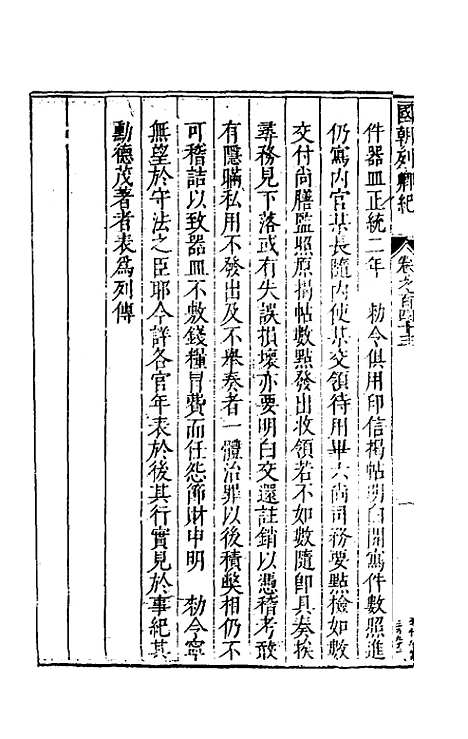 國朝列卿紀 卷之百四十三
件器皿正統二年 勅令俱用印信揭帖明白開寫件數照進
仍寫内官某長隨内使某交領待用畢六尚司務要點檢如數
交付尚膳監照原揭帖數點發出收領若不如數隨即具奏挨
尋務見下落或有失誤損壞亦要明白交還註銷以憑稽考敢
有隱瞞私用不發出及不舉奏者一體治罪以後積獘相仍不
可稽詰以致器皿不敷錢糧冐費而任怨節財申明 勅令寧
無望於守法之臣耶今詳各官年表於後其行實見於事紀其
勳德茂著者表爲列傳